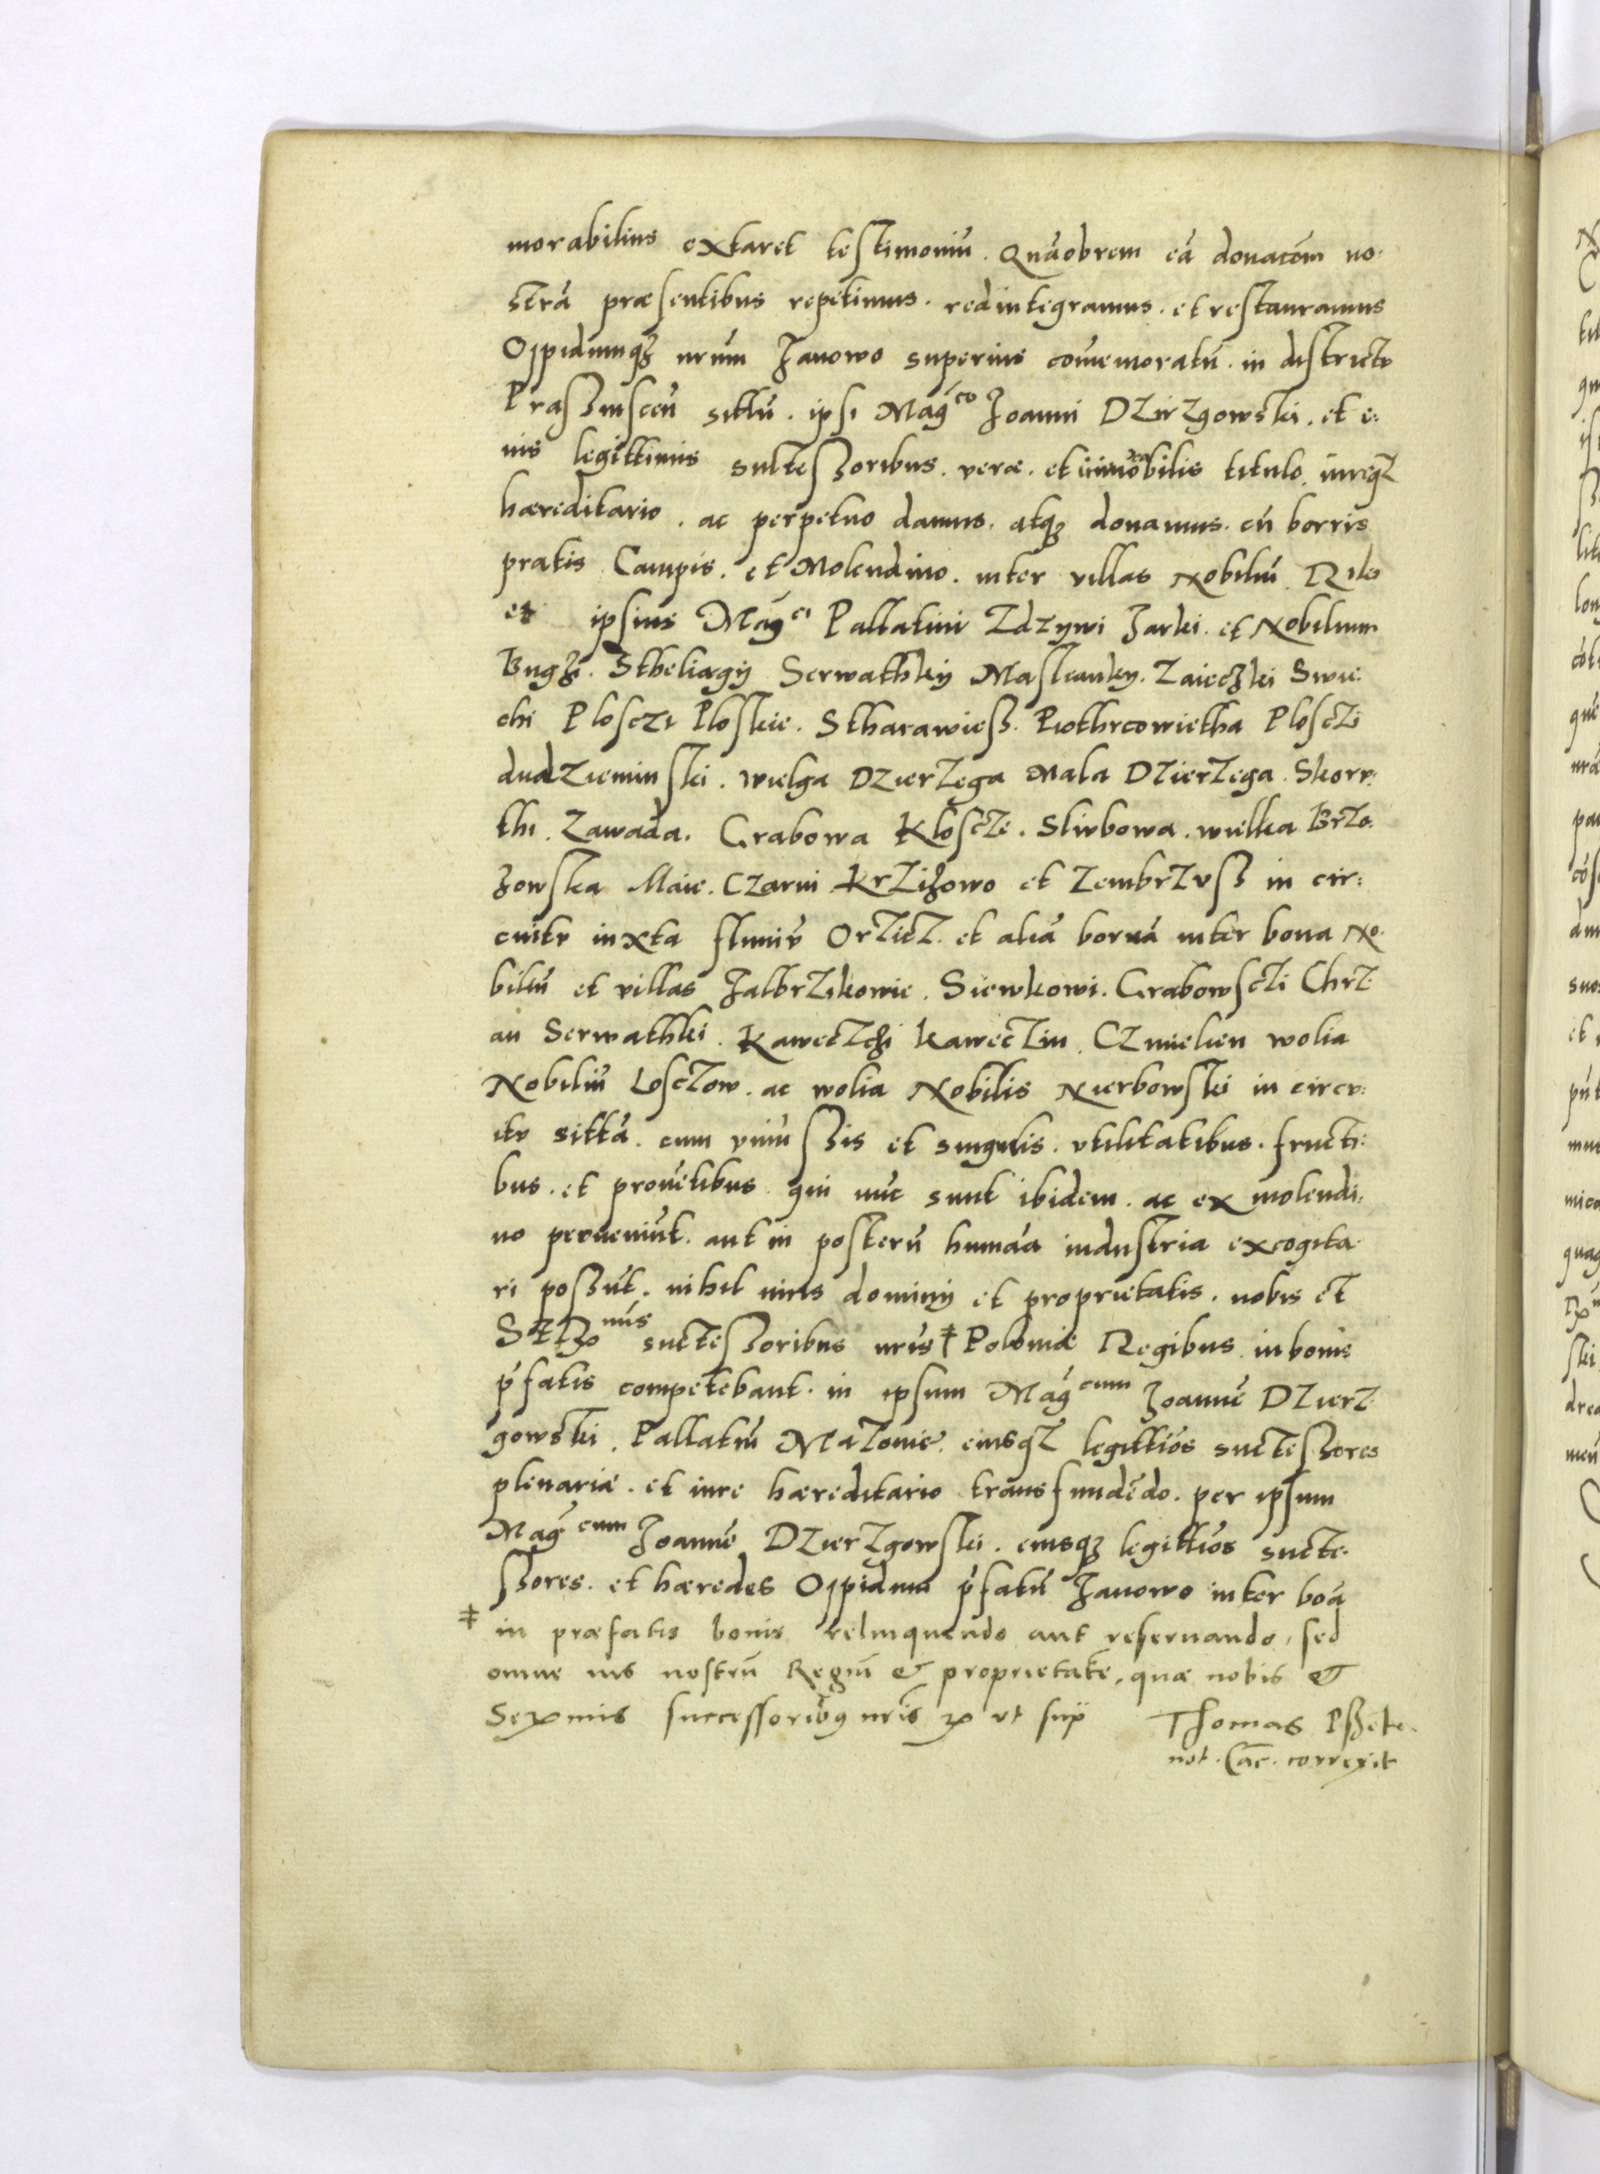 morabilius extaret testimoniū. Quāobrem eā donacōm no-
strā præsentibus repetimus. redintegramus. et restauramus
Oppidumqʒ nrūm Janowo superius cōmemoratū. in districto
Praßnuscēn sittū. ipsi Mag̃co Joanni Dzirzgowski. et e:
ius legittimis suctessoribus. veræ. et titulo. iureqʒ
hæreditario. ac perpetuo damus. atqʒ donamus. cū borris
pratis Campis. et Molendino. inter villas Nobiliū
et ipsius Mag̃ci Pallatini Zdzywi Jarki. et Nobilium
Bugʒi. Stheliægij Serwathkij Masleanky. Zaieczki Swie-
chi Plosczi Ploskie. Stharawieß. Piothrcowietha Plosczi
dudzieminski. wielga Dzierzega Mala Dzierzega. Skorv-
thi. Zawada. Grabowa Kloscze. Slivbowa. wielka Brzo-
zowska Maie. Czarni Krzizowo et Zembrzvß in cir:
cuitv iuxta flumīv Orzicz. et aliā borrā inter bona No-
biliū et villas Jalbrzikowie. Siewkowi. Grabowsczi Chrz-
an Serwathki. Kawectzʒi kaweczin. Czmielien wolia
Nobiliū Losczow. ac wolia Nobilis Nierbowski in circv:
itv sittā. cum vniū ßis et singulis. vtilitatibus. fructi:
bus. et provētibus qui nūc sunt ibidem. ac ex molendi:
no perueniūt. aut in posterū humāa industria excogita-
ri possūt. nihil iuris dominij et proprietatis. nobis et
suctessoribus nrīs ‡ Poloniæ Regibus in bonis
p̄fatis competebant. in ipsum Mag̃cum Joannē Dzierz-
gowski. Pallatiū Mazovie. eiusqʒ legittiōs suctessores
plenariæ. et iure hæreditario transfundēdo. per ipsum
Mag̃cum Joannē Dzierzgowski. eiusqʒ legittiōs sucte-
ssores. et hæredes Oppidum p̄fatū Janowo inter boā
‡ in præfatis bonis relinquendo aut reservando, sed
omne ius nostrū Regiū & proprietatē, quæ nobis &
successoribq nrīs ut sup̄
Thomas Pßete.
not. Cāc. correxit